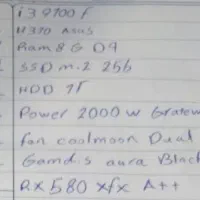 i3 9100 f
H310 Asus
Ram 8 G D4
SSD m.2 256
HDD 1T
Power 2000 w Grateen
fan coolmoon Dual
Gamd.s aura Black
RX 580 xfx A++